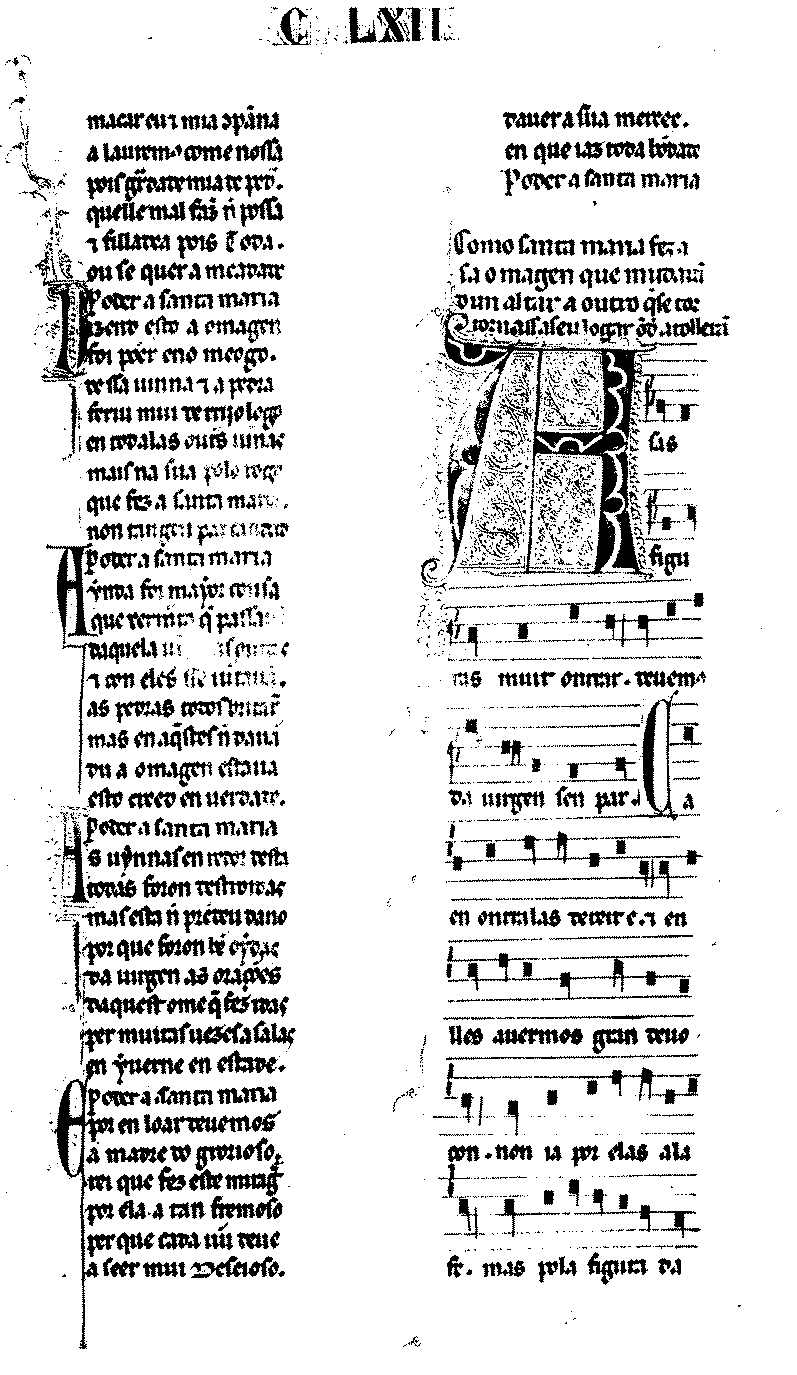 C LXII
macar eu τ mia cõpãna
a lauremos come nossa
pois grãdare mia te ped.
quelle mal faz ñ possa
τ fillarea pois toda.
ou se quer a meadade
Poder a santa maria
Dizend esto a omagen
foi põer eno meogo.
dessa uinna τ a pedra
feriu mui de rrijo logo
en todalas outs uinnas
mais na sua polo rogo
que fez a santa maria.
non tangeu
Poder a santa maria
Aynda foi mayor cousa
que
daquela
τ con eles
as pedras todos britar
mas en aq̃stes ñ daua
du a omagen estaua
esto creed en uerdade.
Poder a santa maria
As uynnas en redor desta
todas foron destroidas
mas esta ñ prendeu dano
por que foron bẽ oydas
da uirgen as orações
daquest ome q̃ fez idas
per muitas uezes a salas
en yuerne en estade.
Poder a santa maria
E poren loar deuemos
a madre do grorioso.
rei que fez este mirag̃
por ela a tan fremoso
per que cada ũu deue
a seer mui Deseioso.
dauer a sua mercee.
en que iaz toda bõdade
Poder a santa maria
Como santa maria fez a
sa omagen que mudauã
dun altar a outro q̃ se tor
tornassa seu logar õd a tollerã
As
sas
figu
ras muit onrrar. deuemos
da uirgen sen par. C a
en onrralas dereit e. τ en
lles auermos gran deuo
con. non ia por elas a la
fe. mas pola figura da